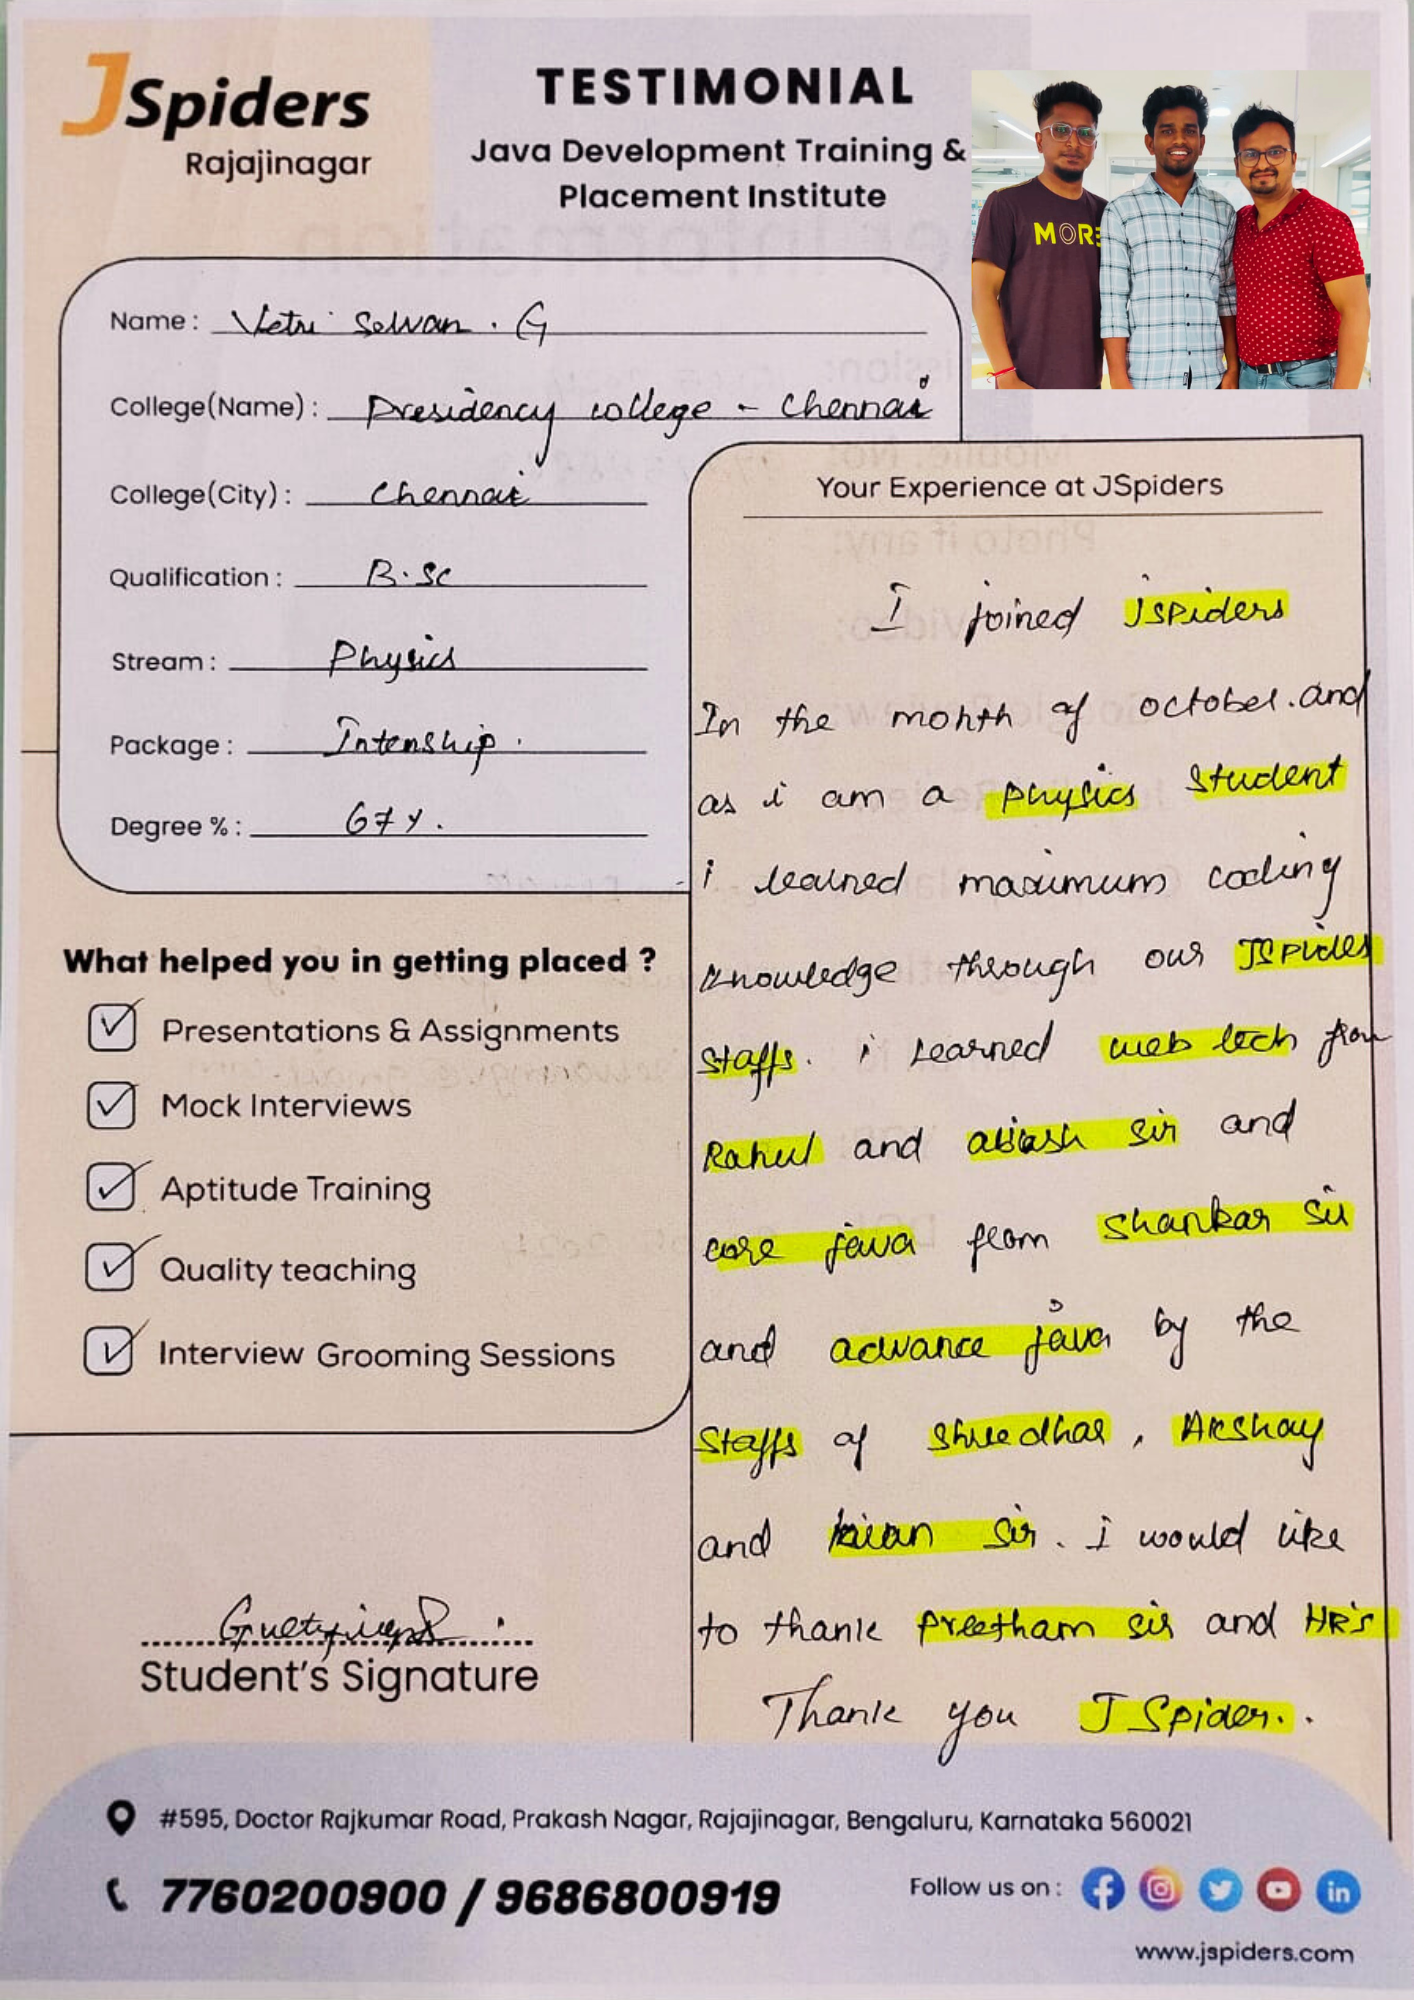 JSpiders
Rajajinagar
TESTIMONIAL
Java Development Training &
Placement Institute
MORE
Name : Vetri Selvan . G
College(Name) : Presidency college - Chennai
College(City) : Chennai
Qualification : B.Sc
Stream : Physics
Package : Intenship .
Degree % : 67%.
What helped you in getting placed ?
Presentations & Assignments
Mock Interviews
Aptitude Training
Quality teaching
Interview Grooming Sessions
Student's Signature
Your Experience at JSpiders
I joined JSPiders
In the month of october. and
as i am a physics student
i learned maximum coding
knowledge through our JSPides
staffs. i Learned web tech from
Rahul and abiash sir and
core java from Shankar sir
and advance java by the
Staffs of Shreedhar , Akshay
and kiran sir. i would like
to thank Preetham sir and HR's
Thank you J Spider..
#595, Doctor Rajkumar Road, Prakash Nagar, Rajajinagar, Bengaluru, Karnataka 560021
7760200900 / 9686800919
Follow us on :
www.jspiders.com